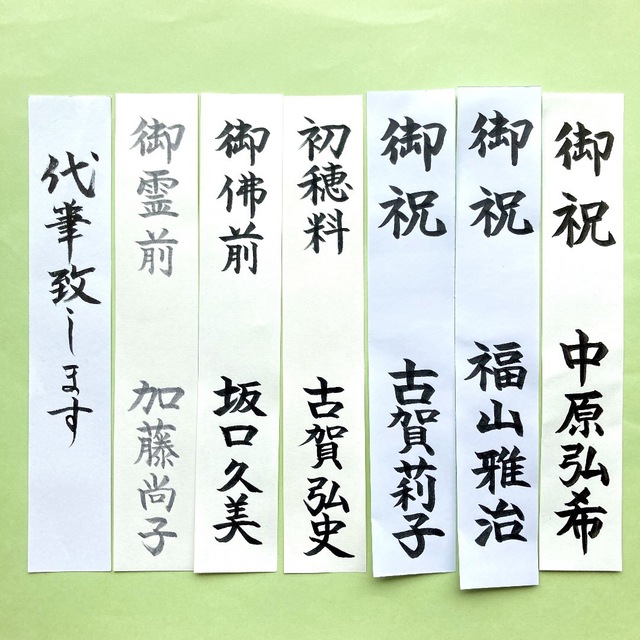 御祝
中原弘希
御祝
福山雅治
御祝
古賀莉子
初穂料
古賀弘史
御佛前
坂口久美
御霊前
加藤尚子
代筆致します